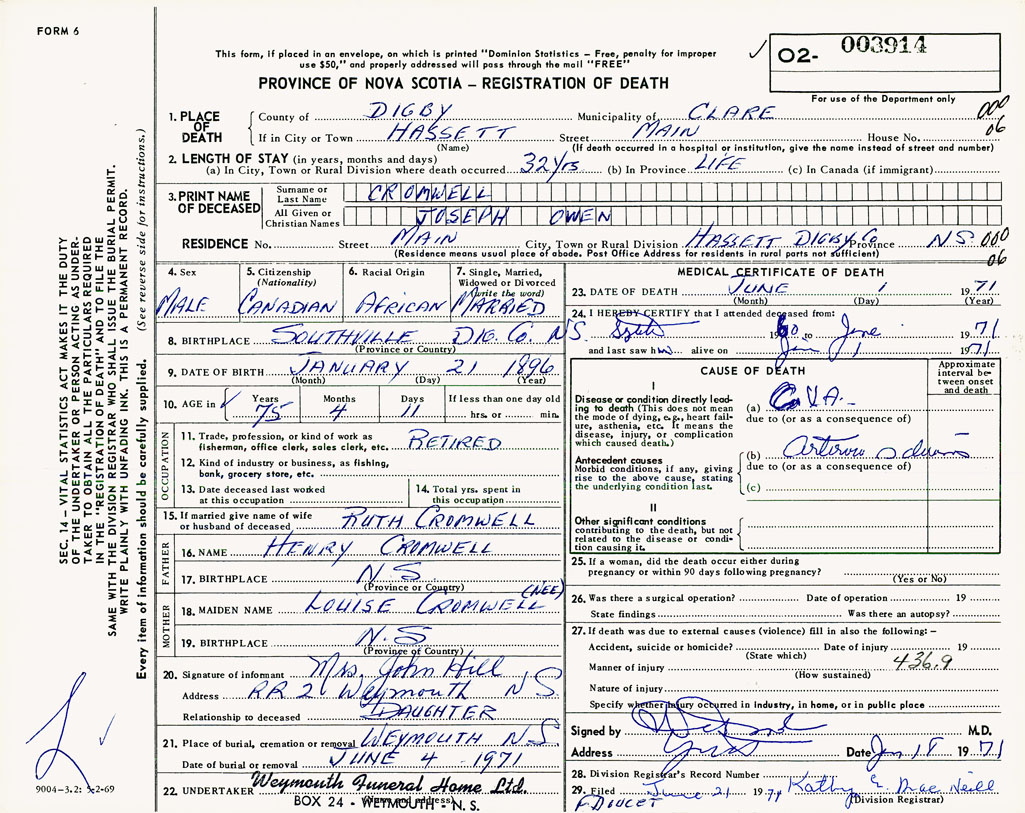 FORM 6
This form, if placed in an envelope, on which is printed "Dominion Statistics – Free, penalty for improper
use $50," and properly addressed will pass through the mail "FREE"
PROVINCE OF NOVA SCOTIA – REGISTRATION OF DEATH
✓ 02- 003914
For use of the Department only
1. PLACE OF DEATH
County of DIGBY Municipality of CLARE 000
If in City or Town HASSETT Street MAIN House No. 06
(Name) (If death occurred in a hospital or institution, give the name instead of street and number)
2. LENGTH OF STAY (in years, months and days)
(a) In City, Town or Rural Division where death occurred 32 yrs (b) In Province LIFE (c) In Canada (if immigrant)
3. PRINT NAME OF DECEASED
Surname or Last Name CROMWELL
All Given or Christian Names JOSEPH OWEN
RESIDENCE No. Street MAIN City, Town or Rural Division HASSETT DIGBY Co Province N.S. 000
(Residence means usual place of abode. Post Office Address for residents in rural parts not sufficient) 06
4. Sex MALE
5. Citizenship (Nationality) CANADIAN
6. Racial Origin AFRICAN
7. Single, Married, Widowed or Divorced (write the word) MARRIED
8. BIRTHPLACE SOUTHVILLE DIG. Co. N.S.
(Province or Country)
9. DATE OF BIRTH JANUARY 21 1896
(Month) (Day) (Year)
10. AGE in ✓ Years 75 Months 4 Days 11 If less than one day old
hrs. or min.
OCCUPATION
11. Trade, profession, or kind of work as fisherman, office clerk, sales clerk, etc. RETIRED
12. Kind of industry or business, as fishing, bank, grocery store, etc.
13. Date deceased last worked at this occupation
14. Total yrs. spent in this occupation
15. If married give name of wife or husband of deceased RUTH CROMWELL
FATHER
16. NAME HENRY CROMWELL
17. BIRTHPLACE N.S.
(Province or Country)
MOTHER
18. MAIDEN NAME LOUISE CROMWELL (NEE)
19. BIRTHPLACE N.S
(Province of Country)
20. Signature of informant Mrs. John Hill
Address RR 2 Weymouth N S
Relationship to deceased DAUGHTER
21. Place of burial, cremation or removal WEYMOUTH N.S.
Date of burial or removal JUNE 4 1971
22. UNDERTAKER Weymouth Funeral Home Ltd.
BOX 24 - WEYMOUTH - N. S.
MEDICAL CERTIFICATE OF DEATH
23. DATE OF DEATH JUNE 1 1971
(Month) (Day) (Year)
24. I HEREBY CERTIFY that I attended deceased from:
1960 to June 1971
and last saw him alive on 1 1971
CAUSE OF DEATH
Approximate interval between onset and death
I
Disease or condition directly leading to death (This does not mean the mode of dying, e.g., heart failure, asthenia, etc. It means the disease, injury, or complication which caused death.)
(a) C.V.A.
due to (or as a consequence of)
Antecedent causes
Morbid conditions, if any, giving rise to the above cause, stating the underlying condition last.
(b)
due to (or as a consequence of)
(c)
II
Other significant conditions
contributing to the death, but not related to the disease or condition causing it.
25. If a woman, did the death occur either during
pregnancy or within 90 days following pregnancy?
(Yes or No)
26. Was there a surgical operation? Date of operation 19
State findings Was there an autopsy?
27. If death was due to external causes (violence) fill in also the following: –
Accident, suicide or homicide? Date of injury 19
(State which)
Manner of injury 436.9
(How sustained)
Nature of injury
Specify whether injury occurred in industry, in home, or in public place
Signed by M.D.
Address Date 18 1971
28. Division Registrar's Record Number
29. Filed June 21 1971 Kathy E. MacNeill
F DOUCET (Division Registrar)
SEC. 14 – VITAL STATISTICS ACT MAKES IT THE DUTY
OF THE UNDERTAKER OR PERSON ACTING AS UNDER-
TAKER TO OBTAIN ALL THE PARTICULARS REQUIRED
IN THE "REGISTRATION OF DEATH" AND TO FILE THE
SAME WITH THE DIVISION REGISTRAR WHO SHALL ISSUE THE BURIAL PERMIT.
WRITE PLAINLY WITH UNFADING INK. THIS IS A PERMANENT RECORD.
Every item of information should be carefully supplied. (See reverse side for instructions.)
9004-3.2: 2-69